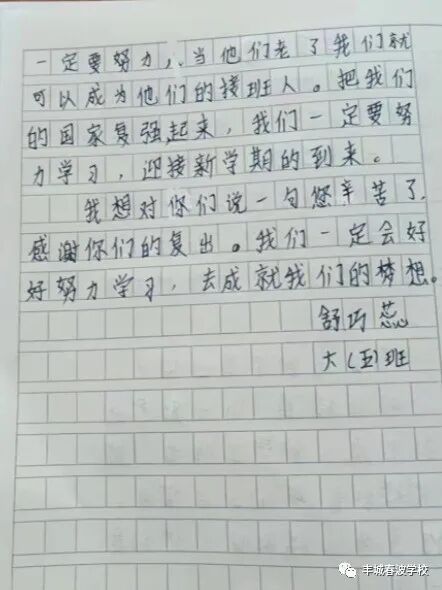 一定要努力,当他们老了我们就
可以成为他们的接班人。把我们
的国家复强起来，我们一定要努
力学习，迎接新学期的到来。
我想对你们说一句您辛苦了,
感谢你们的复出。我们一定会好
好努力学习，去成就我们的梦想。
舒巧蕊
大(五)班
丰城春波学校